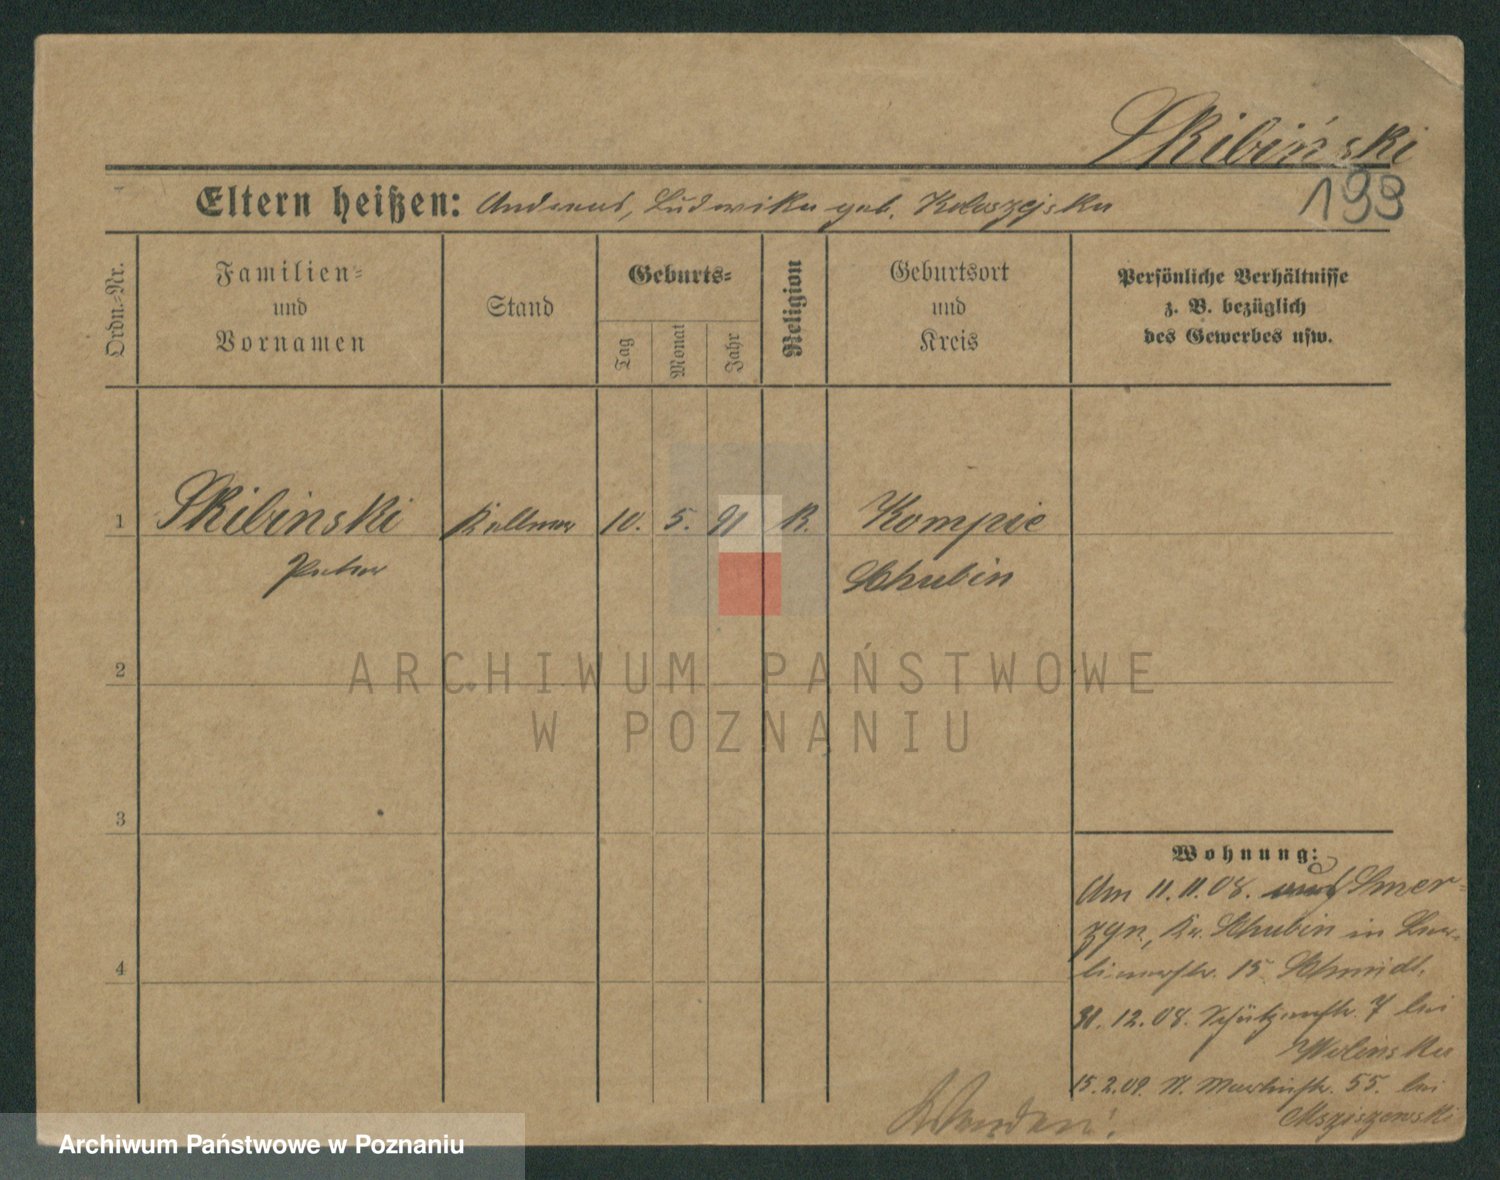 Skibiński
199
Eltern heißen: Andreas, Ludwika geb. Koloszejska
Ordn.-Nr.
Familien-
und
Vornamen
Stand
Geburts-
Tag
Monat
Jahr
Religion
Geburtsort
und
Kreis
Persönliche Verhältnisse
z. B. bezüglich
des Gewerbes usw.
1 Skibinski Kellner 10. 5. 91 K. Kompie
Peter Schubin
2
ARCHIWUM PAŃSTWOWE
W POZNANIU
3
4
Wohnung:
Am 11.11.08. Smer-
zyn, Kr. Schubin in Ber-
linerstr. 15 Schmidt.
31.12.08. Schützenstr. 7 bei
Wolenska
15.2.09. St. Martinstr. 55. bei
Msziszewski
Wenden!
Archiwum Państwowe w Poznaniu